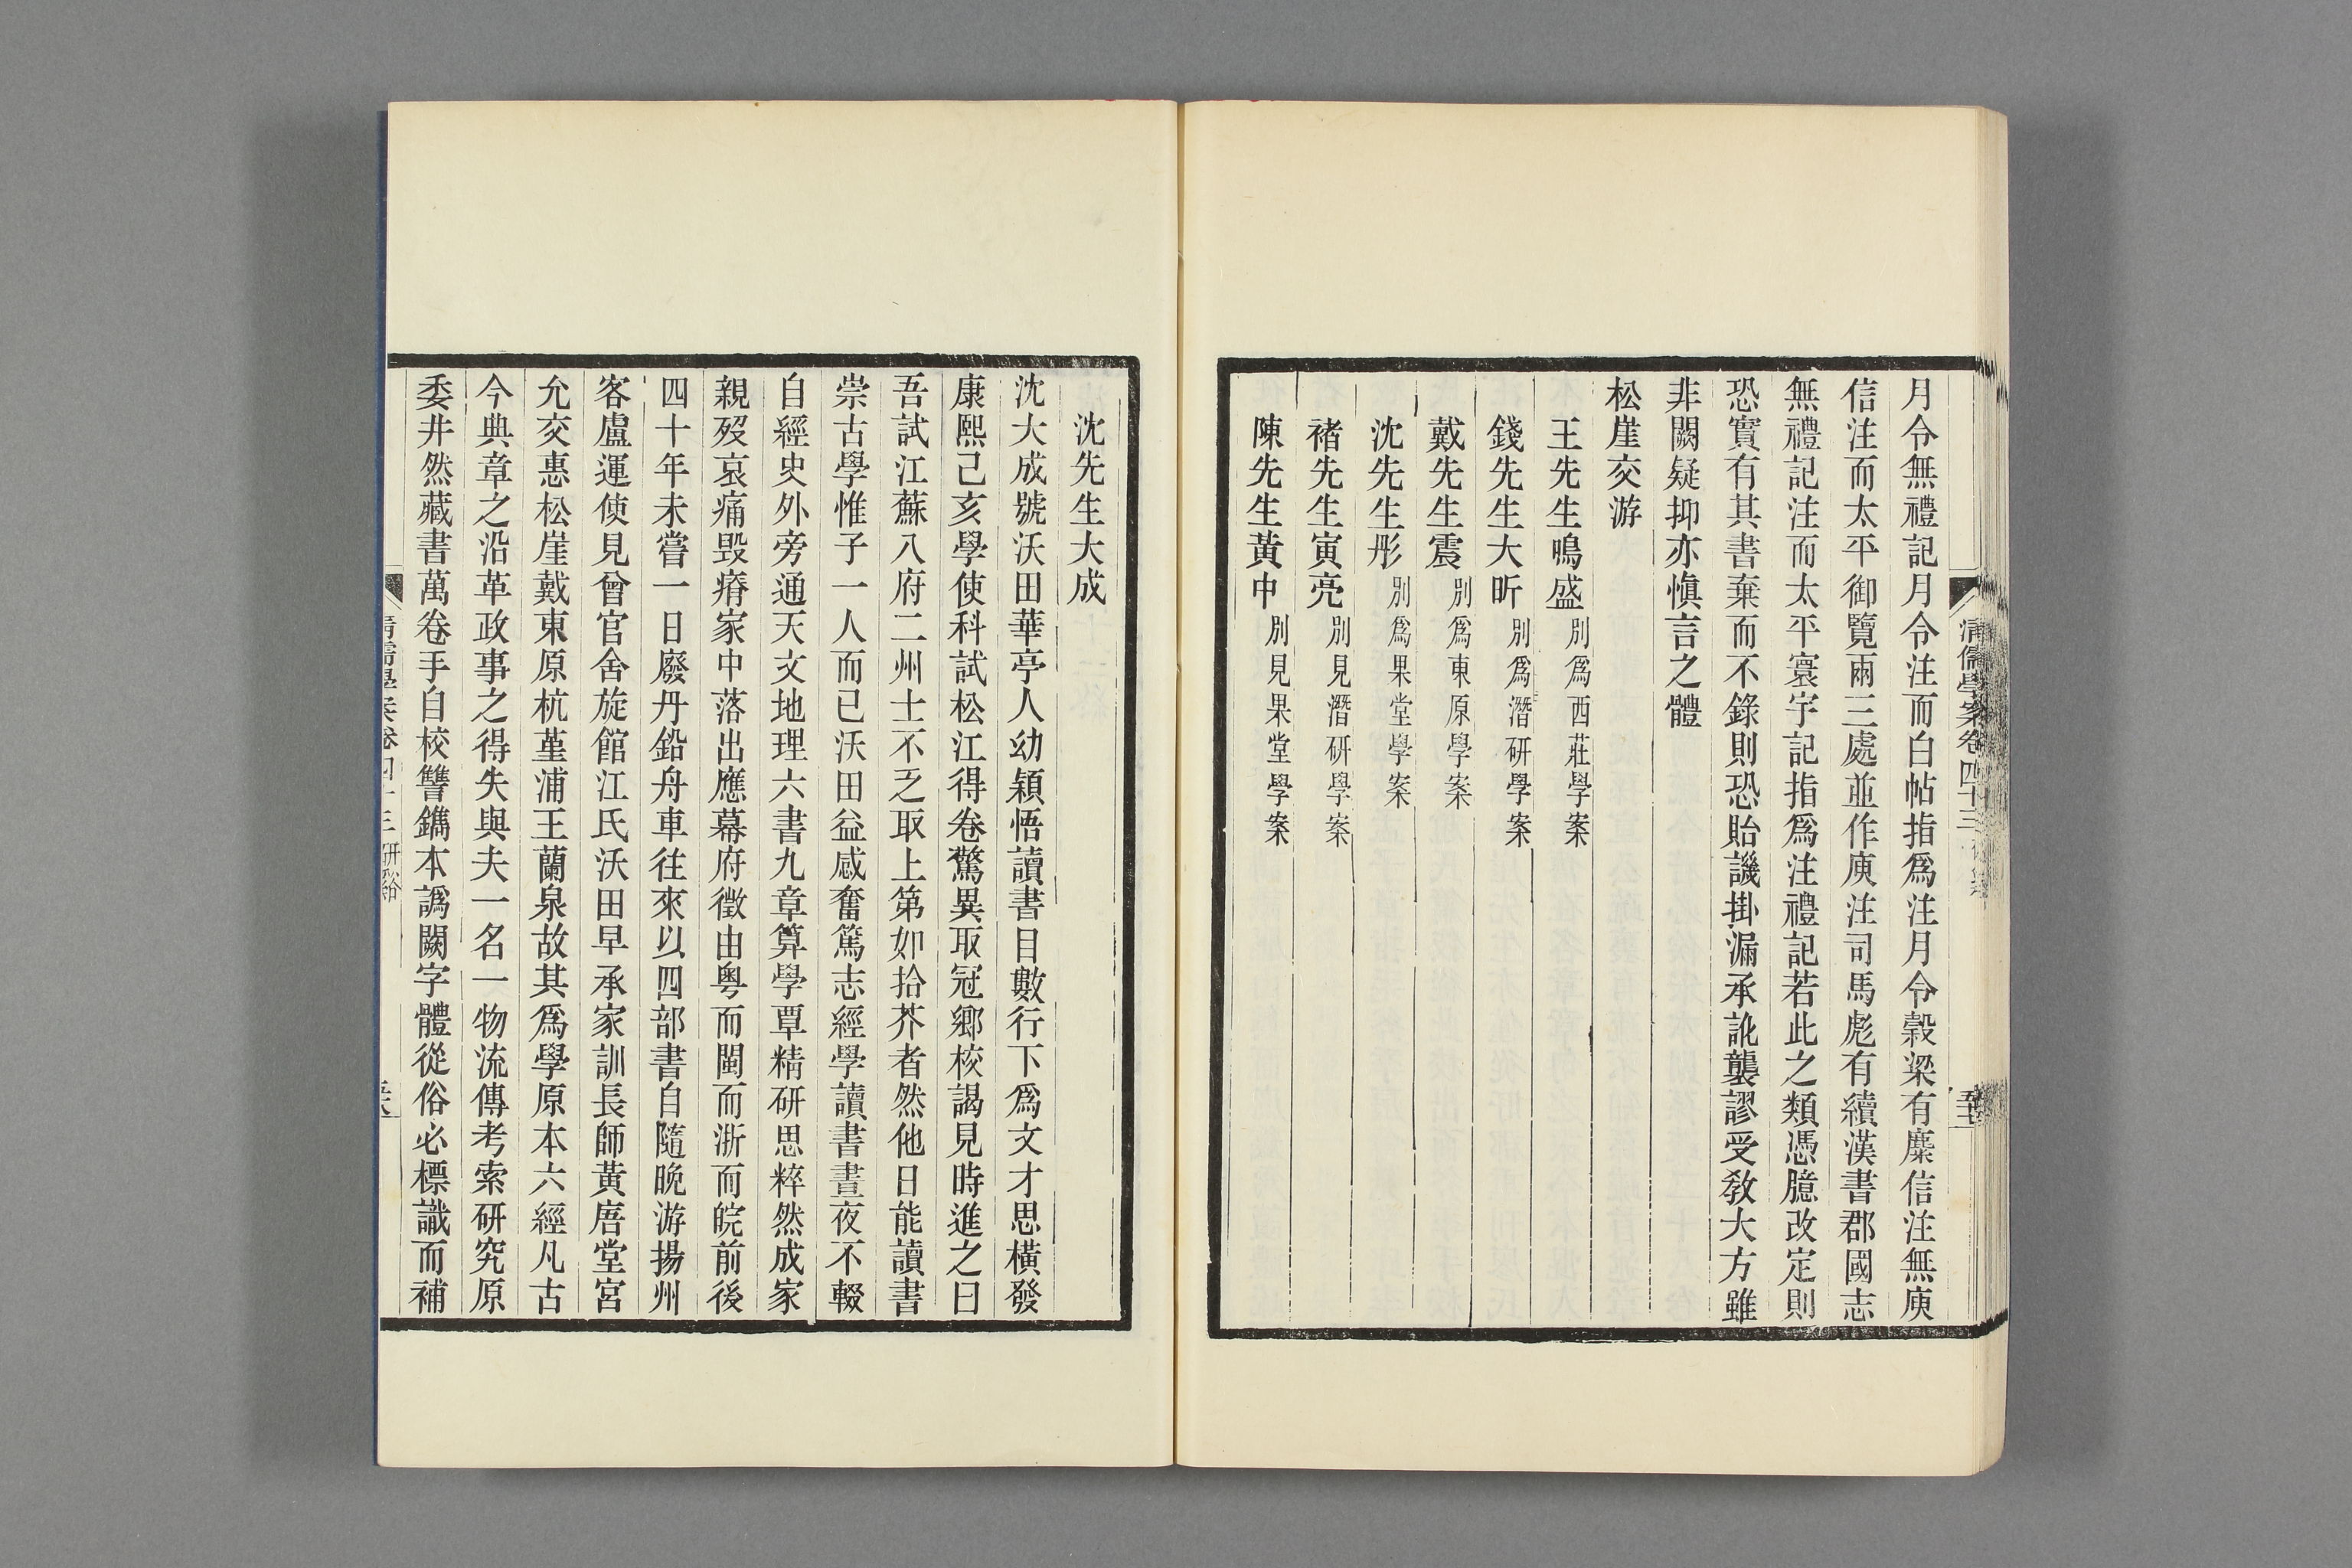 月令無禮記月令注而白帖指爲注月令穀梁有麋信注無庾
信注而太平御覽兩三處並作庾注司馬彪有續漢書郡國志
無禮記注而太平寰宇記指爲注禮記若此之類憑臆改定則
恐實有其書棄而不錄則恐貽譏掛漏承訛襲謬受敎大方雖
非闕疑抑亦愼言之體
松崖交游
王先生鳴盛 別爲西莊學案
錢先生大昕 別爲潛研學案
戴先生震 別爲東原學案
沈先生彤 別爲果堂學案
褚先生寅亮 別見潛研學案
陳先生黃中 別見果堂學案
清儒學案卷四十三
沈先生大成
沈大成號沃田華亭人幼穎悟讀書目數行下爲文才思橫發
康熙己亥學使科試松江得卷驚異取冠鄉校謁見時進之曰
吾試江蘇八府二州士不乏取上第如拾芥者然他日能讀書
崇古學惟子一人而已沃田益感奮篤志經學讀書晝夜不輟
自經史外旁通天文地理六書九章算學覃精研思粹然成家
親歿哀痛毀瘠家中落出應幕府徵由粵而閩而浙而皖前後
四十年未嘗一日廢丹鉛舟車往來以四部書自隨晚游揚州
客盧運使見曾官舍旋館江氏沃田早承家訓長師黃唐堂宮
允交惠松崖戴東原杭堇浦王蘭泉故其爲學原本六經凡古
今典章之沿革政事之得失與夫一名一物流傳考索硏究原
委井然藏書萬卷手自校讐鐫本譌闕字體從俗必標識而補